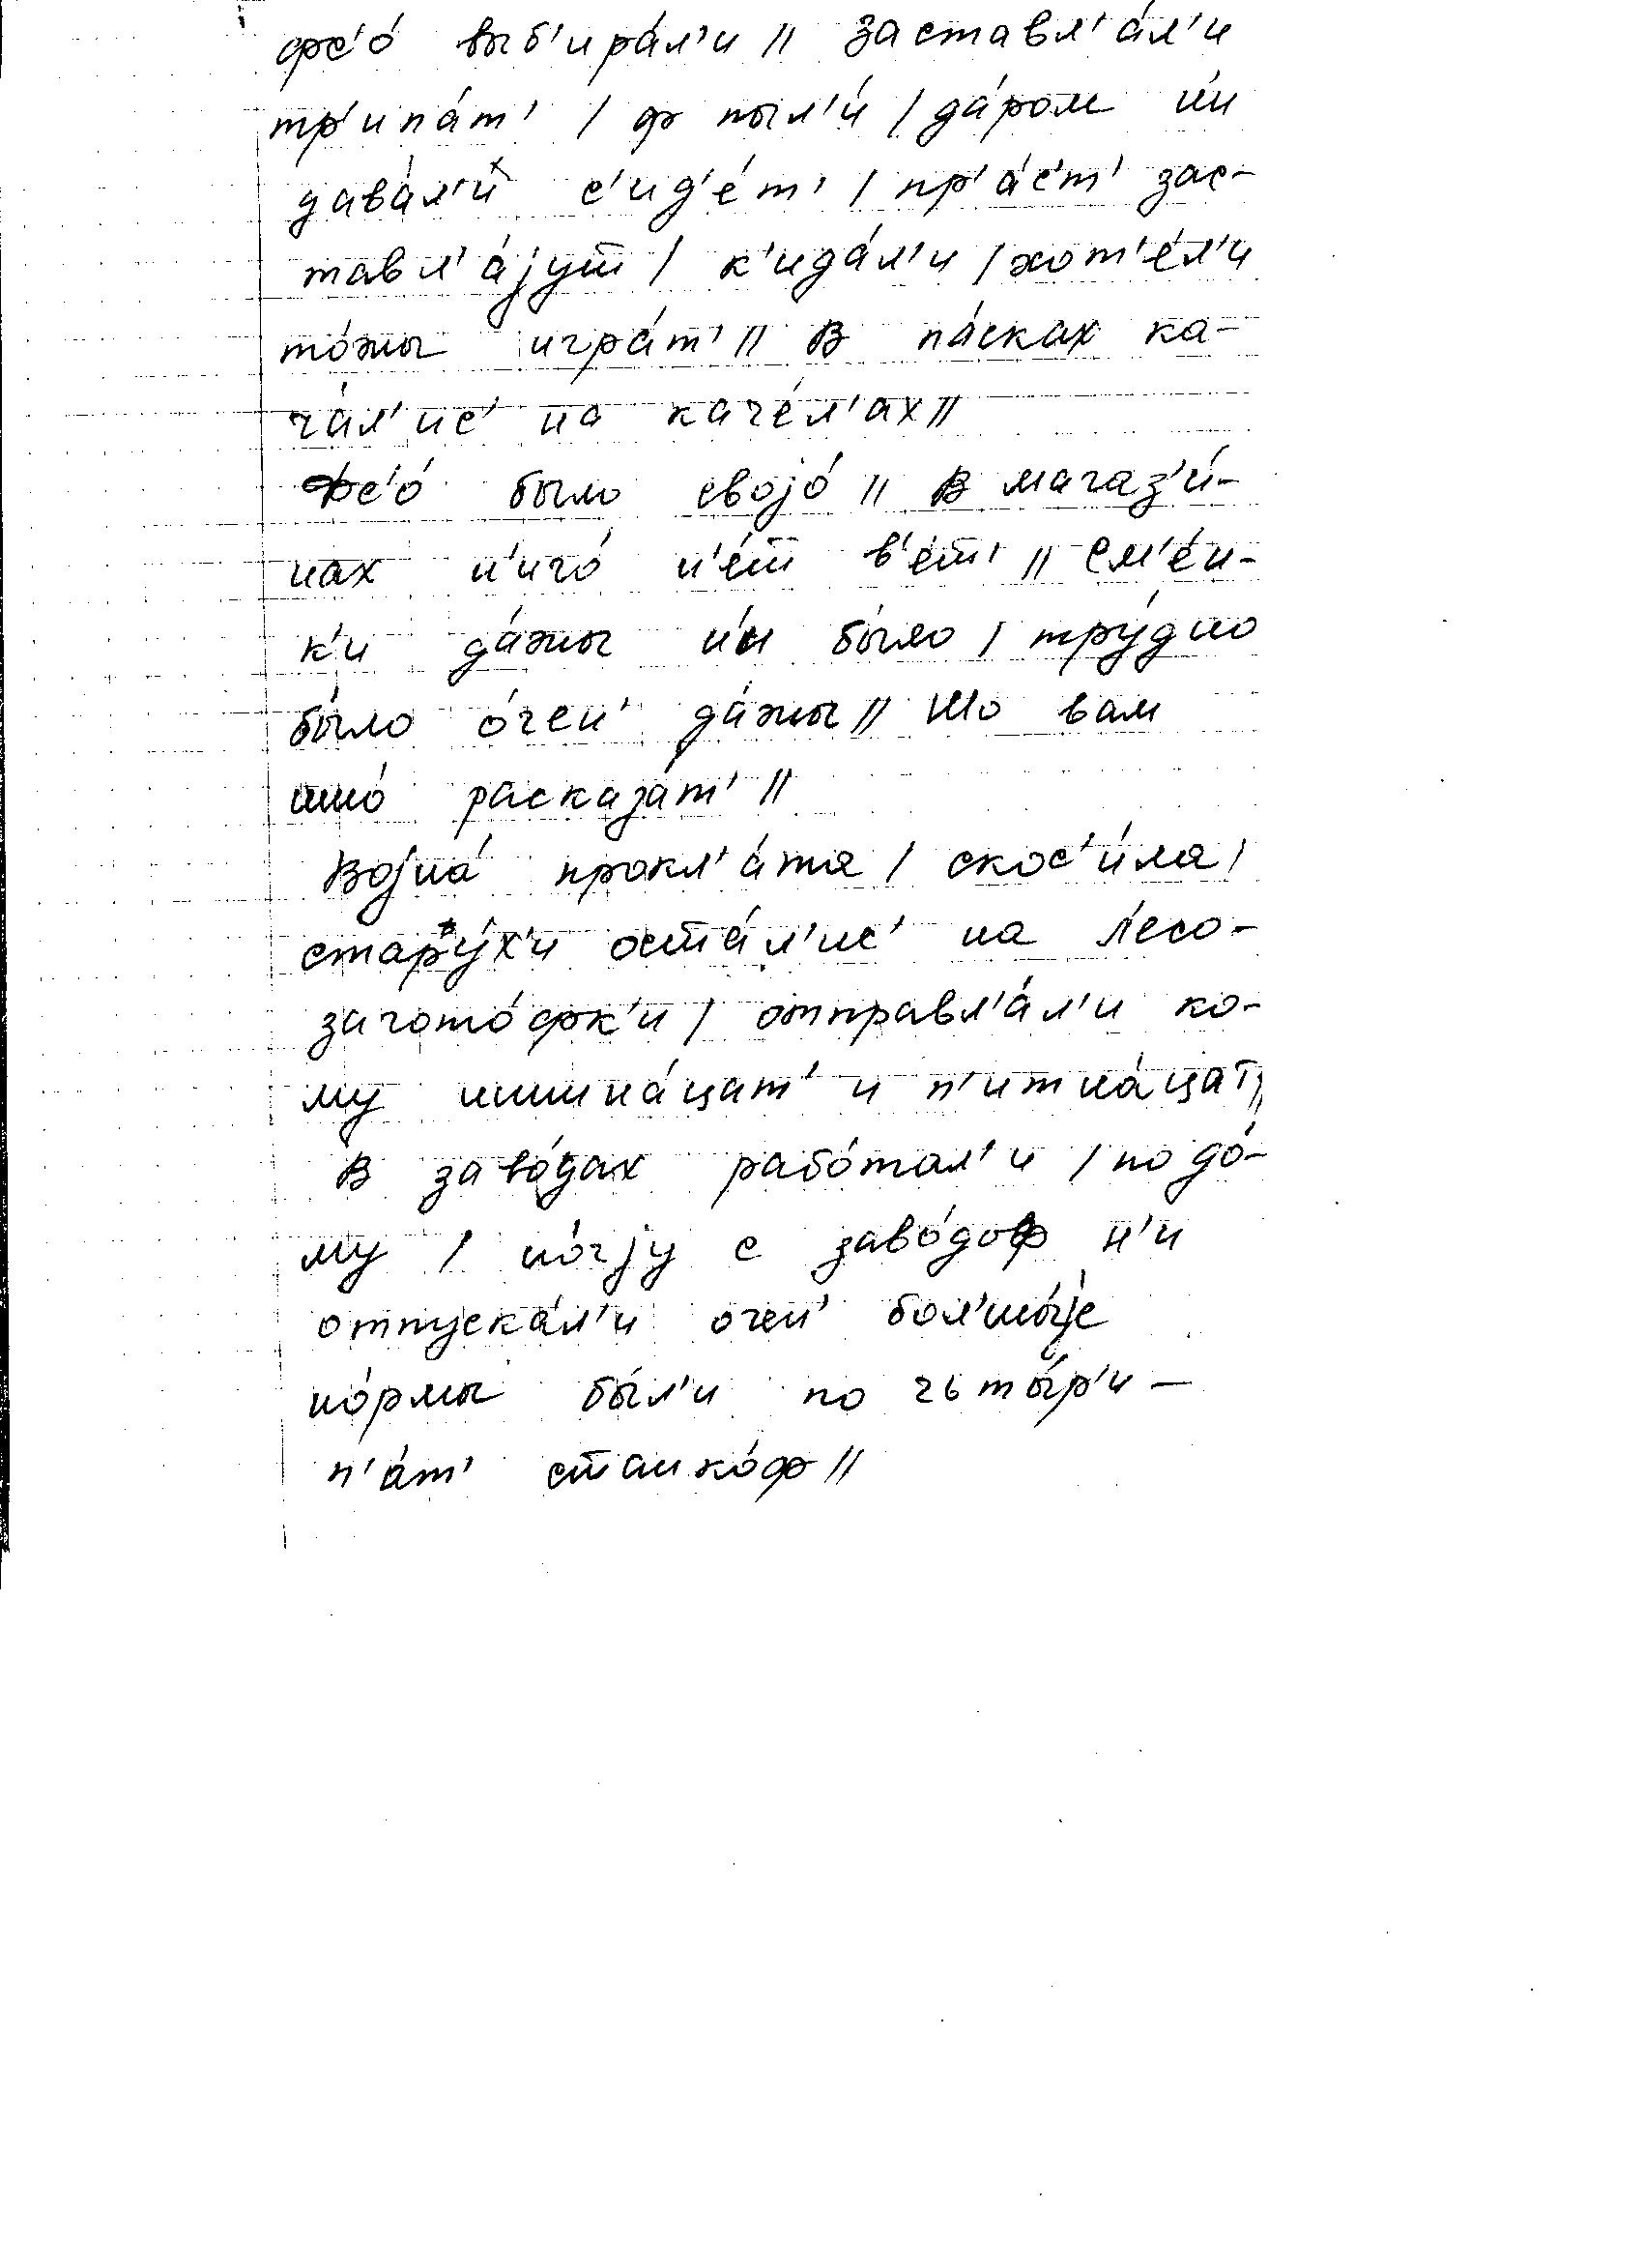 фс'о́ выб'ира́л'и // заставл'а́л'и
тр'ипа́т' / ф пыл'и́ / да́ром н'и
дава́л'и с'ид'е́т' / пр'а́с'т' зас-
тавл'а́јут / к'ида́л'и / хот'е́л'и
то́жы игра́т' // В па́сках ка-
ча́л'ис' на каче́л'ах //
Фс'о́ было својо́ // В магаз'и́-
нах н'иго́ н'е́т в'е́т' // см'е́н-
к'и да́жы н'и бы́ло / тру́дно
бы́ло о́чен' да́жы // Шо вам
ишшо́ расказа́т' //
Војна́ прокл'а́тя / скос'и́ла /
стару́х'и оста́л'ис' на лесо-
загото́фк'и / отправл'а́л'и ко-
му шшна́цат' и п'итна́цат' //
В заво́дах рабо́тал'и / по до́-
му / но́чју с заво́доф н'и
отпуска́л'и очен' бол'шы́је
но́рмы бы́л'и по чьты́р'и –
п'а́т' станко́ф //